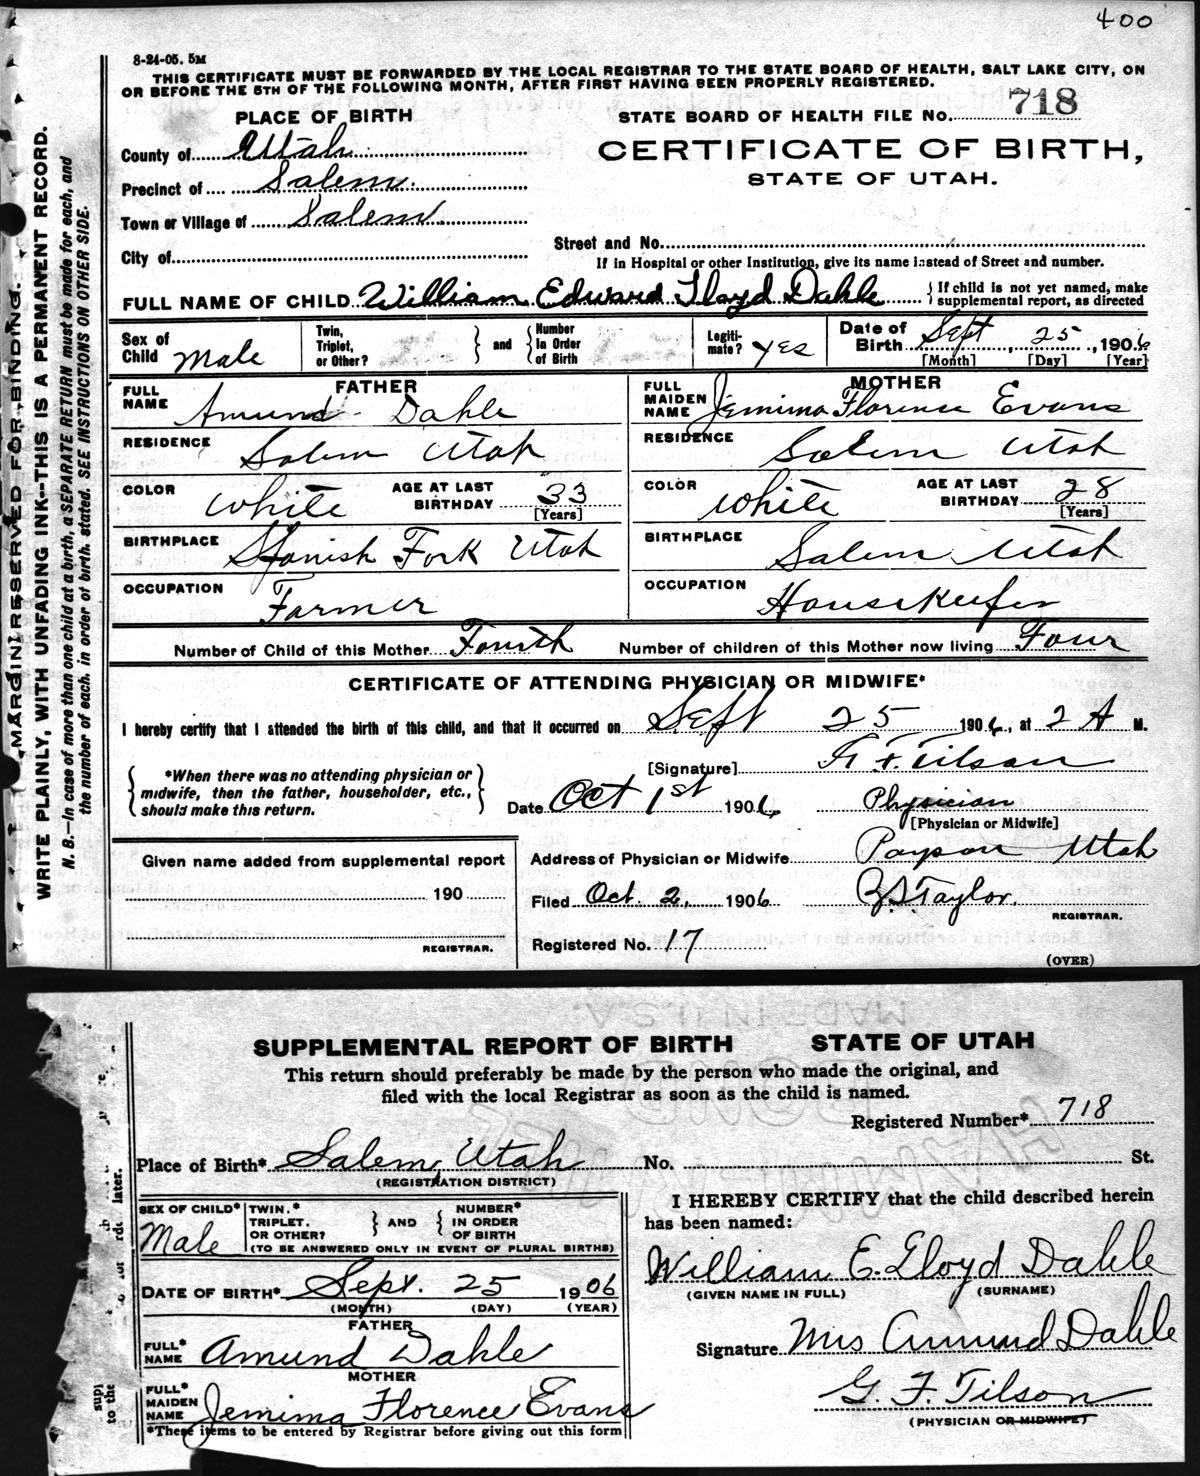 400
8-24-05. 5M
THIS CERTIFICATE MUST BE FORWARDED BY THE LOCAL REGISTRAR TO THE STATE BOARD OF HEALTH, SALT LAKE CITY, ON
OR BEFORE THE 5TH OF THE FOLLOWING MONTH, AFTER FIRST HAVING BEEN PROPERLY REGISTERED.
MARGIN RESERVED FOR BINDING.
WRITE PLAINLY, WITH UNFADING INK--THIS IS A PERMANENT RECORD.
N. B.—In case of more than one child at a birth, a SEPARATE RETURN must be made for each, and
the number of each, in order of birth, stated. SEE INSTRUCTIONS ON OTHER SIDE.
PLACE OF BIRTH
STATE BOARD OF HEALTH FILE No. 718
County of Utah
CERTIFICATE OF BIRTH,
STATE OF UTAH.
Precinct of Salem
Town or Village of Salem
Street and No.
City of
If in Hospital or other Institution, give its name instead of Street and number.
FULL NAME OF CHILD William Edward Lloyd Dahle { If child is not yet named, make
supplemental report, as directed
Sex of Child Male
Twin, Triplet, or Other? } and { Number In Order of Birth
Legitimate? Yes
Date of Birth Sept 25, 1906
[Month] [Day] [Year]
FATHER MOTHER
FULL NAME Amund Dahle FULL MAIDEN NAME Jemima Florence Evans
RESIDENCE Salem Utah RESIDENCE Salem Utah
COLOR White AGE AT LAST BIRTHDAY 33 [Years] COLOR White AGE AT LAST BIRTHDAY 28 [Years]
BIRTHPLACE Spanish Fork Utah BIRTHPLACE Salem Utah
OCCUPATION Farmer OCCUPATION Housekeeper
Number of Child of this Mother Fourth Number of children of this Mother now living Four
CERTIFICATE OF ATTENDING PHYSICIAN OR MIDWIFE*
I hereby certify that I attended the birth of this child, and that it occurred on Sept 25 1906, at 2 A M.
{ *When there was no attending physician or
midwife, then the father, householder, etc.,
should make this return. }
[Signature] G. F. Tilson
Date Oct 1st 1906 Physician
[Physician or Midwife]
Given name added from supplemental report
190
REGISTRAR.
Address of Physician or Midwife Payson Utah
Filed Oct. 2, 1906 Taylor.
REGISTRAR.
Registered No. 17
(OVER)
SUPPLEMENTAL REPORT OF BIRTH STATE OF UTAH
This return should preferably be made by the person who made the original, and
filed with the local Registrar as soon as the child is named.
Registered Number* 718
Place of Birth* Salem, Utah No. St.
(REGISTRATION DISTRICT)
SEX OF CHILD* Male
TWIN,* TRIPLET, OR OTHER? } AND { NUMBER* IN ORDER OF BIRTH
(TO BE ANSWERED ONLY IN EVENT OF PLURAL BIRTHS)
DATE OF BIRTH* Sept. 25 1906
(MONTH) (DAY) (YEAR)
FATHER
FULL* NAME Amund Dahle
MOTHER
FULL* MAIDEN NAME Jemima Florence Evans
*These items to be entered by Registrar before giving out this form
I HEREBY CERTIFY that the child described herein
has been named:
William E. Lloyd Dahle
(GIVEN NAME IN FULL) (SURNAME)
Signature Mrs Amund Dahle
G. F. Tilson
(PHYSICIAN OR MIDWIFE)